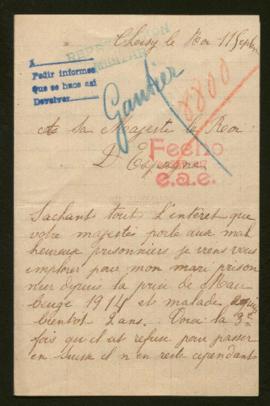 Choisy le Roi 11 Septbre
REPATRIACIÓN
MILITAR
A
Pedir informes
Que se hace así
Devolver
Gautier
8800
A Sa Majesté le Roi
D'Espagne
Fecho
e.a.e.
Sachant tout l'intérêt que
votre majesté porte aux mal
heureux prisonniers je viens vous
implorer pour mon mari prison
nier depuis la prise de Mau
beuge 1914 et malade depuis
bientot 2 ans. Voici la 3e
fois qu'il est refusé pour passer
en Suisse il n'en reste cependant